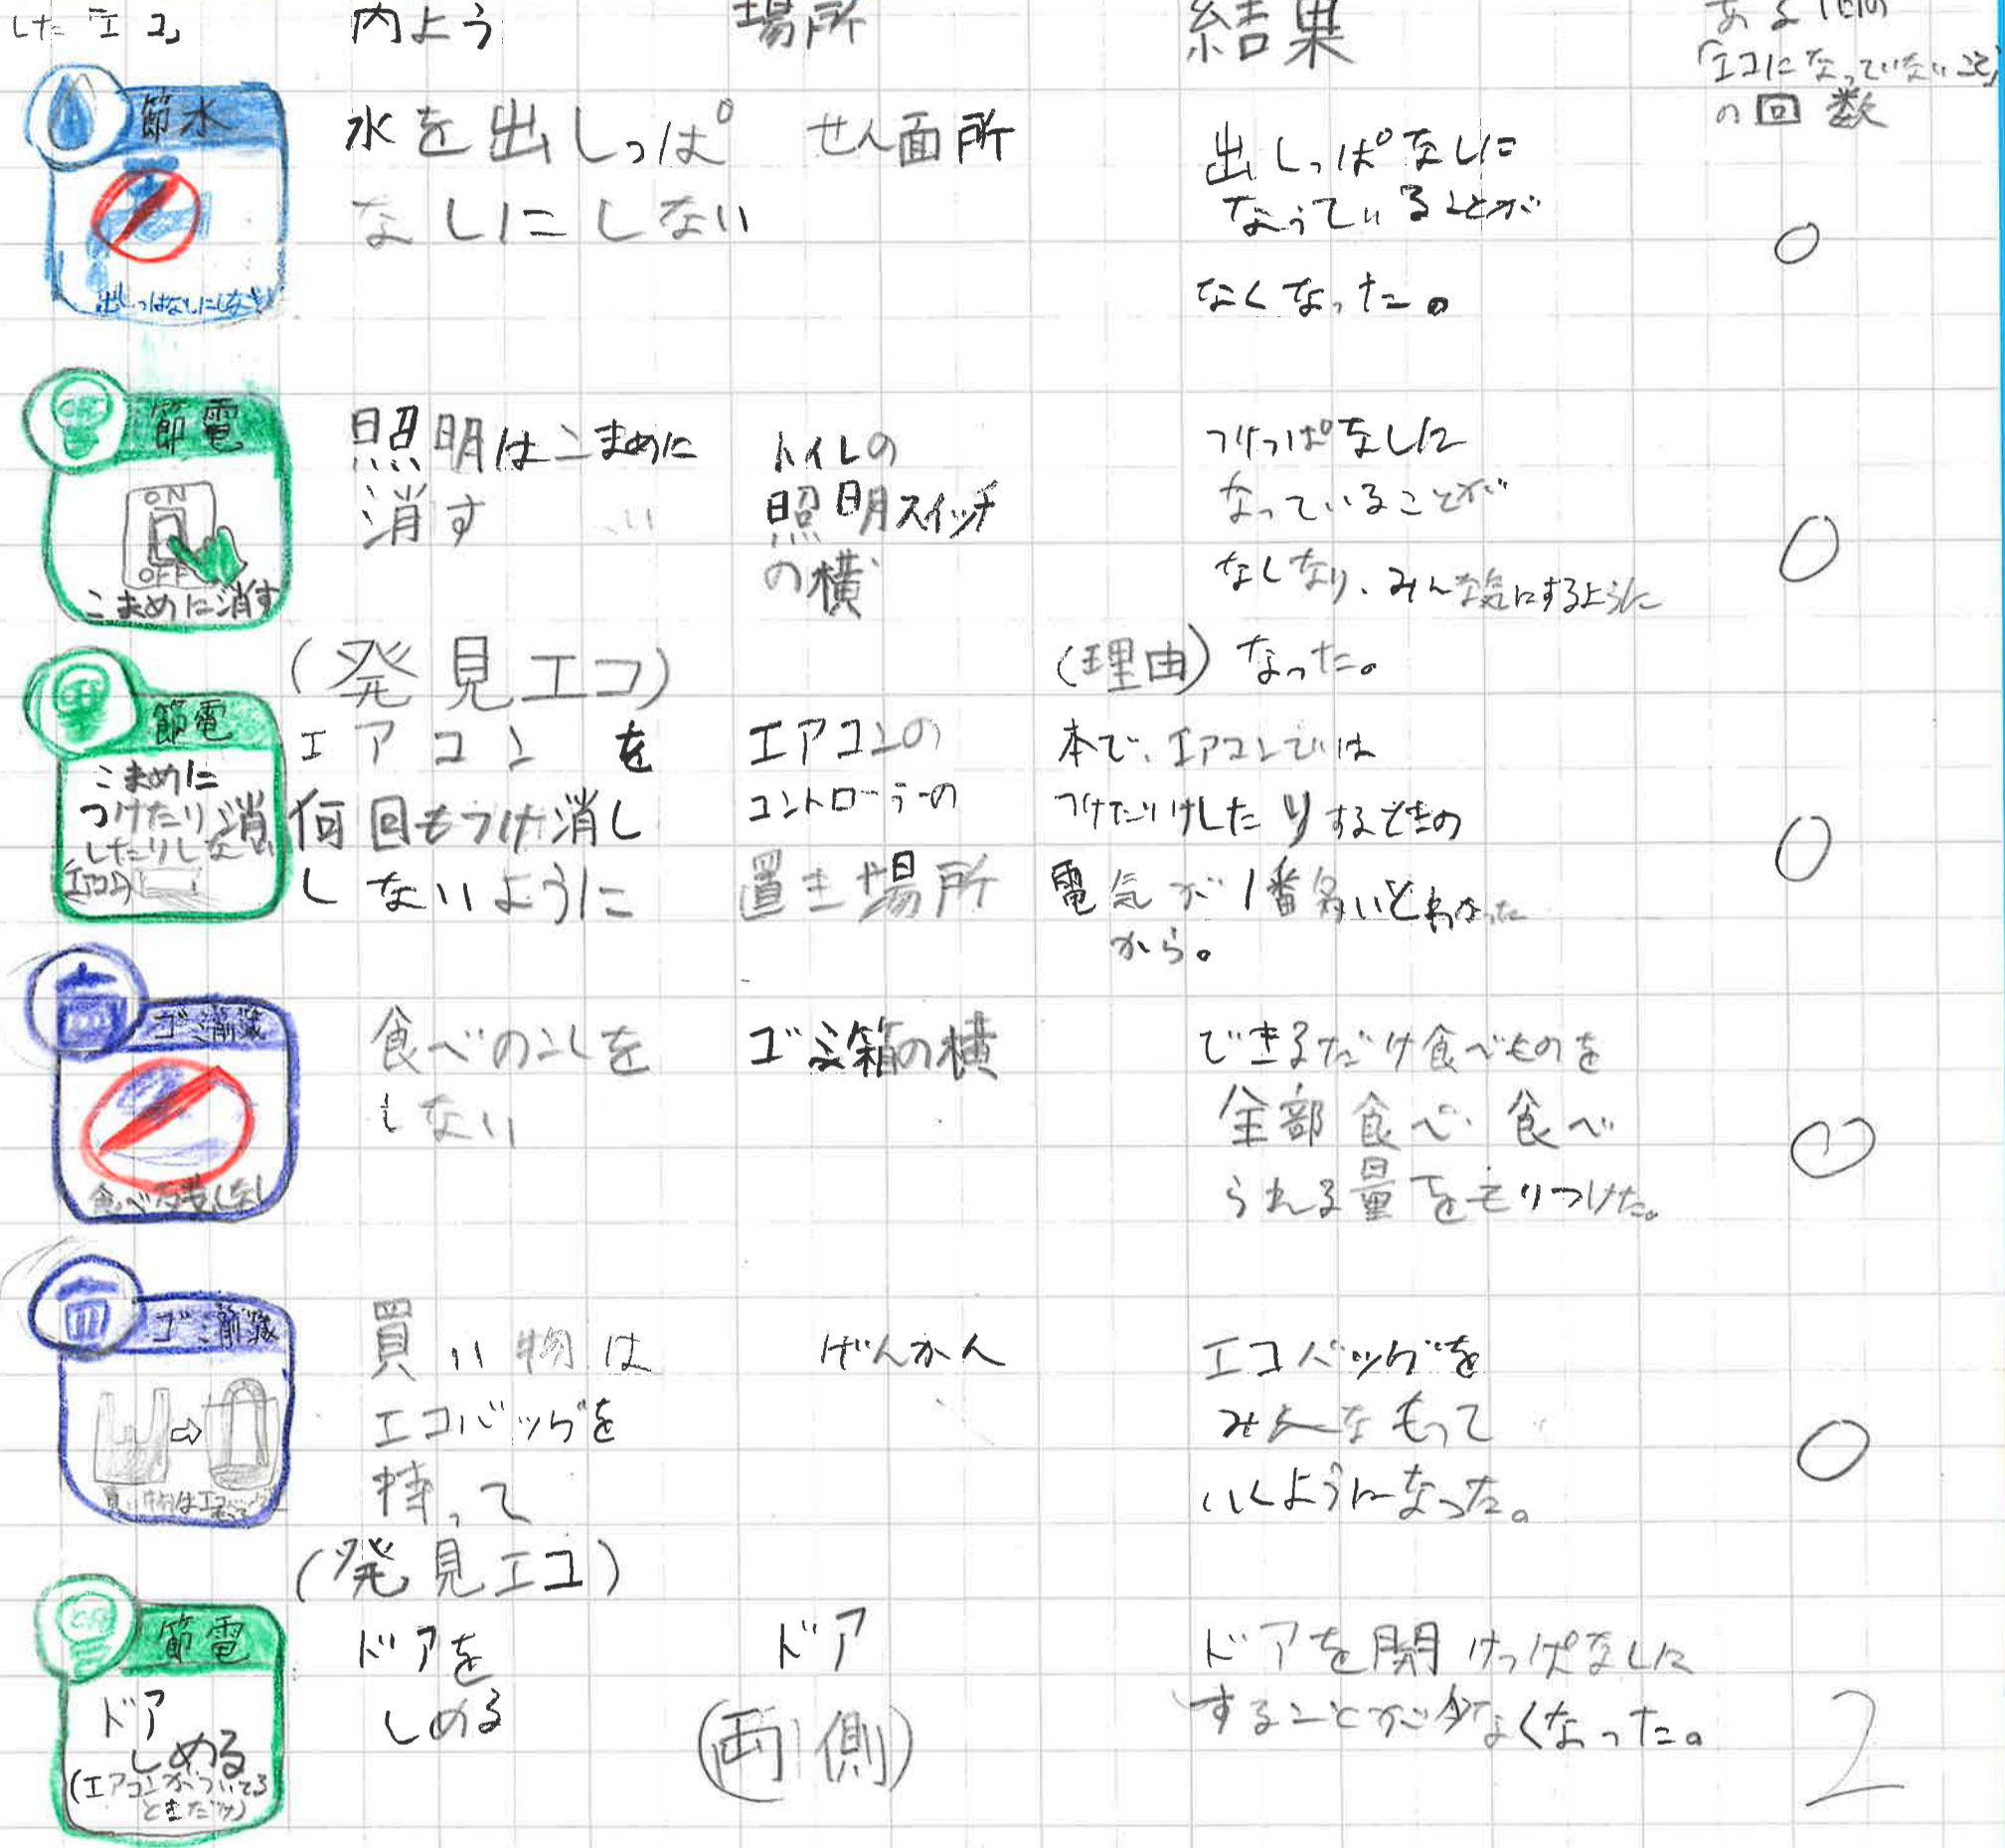 した「エコ」
内よう
場所
結果
ある1日の
「エコになっていないこと」
の回数
節水
出しっぱなしにしない
水を出しっぱ
なしにしない
せん面所
出しっぱなしに
なっていることが
なくなった。
0
節電
ON
OFF
こまめに消す
照明はこまめに
消す
トイレの
照明スイッチ
の横
つけっぱなしに
なっていることが
なくなり、みんな気にするように
なった。
0
節電
こまめに
つけたり消
したりしない
(エアコン)
(発見エコ)
エアコンを
何回もつけ消し
しないように
エアコンの
コントローラーの
置き場所
(理由)
本で、エアコンでは
つけたりけしたりするときの
電気が1番多いとわかった
から。
0
ゴミ削減
食べのこしを
しない
ゴミ箱の横
できるだけ食べものを
全部食べ、食べ
られる量をもりつけた。
0
ゴミ削減
買い物はエコバッグ
買い物は
エコバッグを
持って
げんかん
エコバッグを
みんなもって
いくようになった。
0
節電
ドア
しめる
(エアコンがついてる
ときだけ)
(発見エコ)
ドアを
しめる
ドア
(両側)
ドアを開けっぱなしに
することが少なくなった。
2